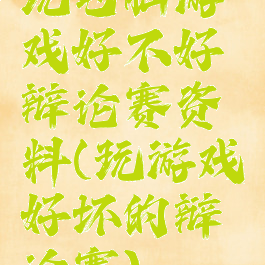 玩电脑游
戏好不好
辩论赛资
料(玩游戏
好坏的辩
论赛)